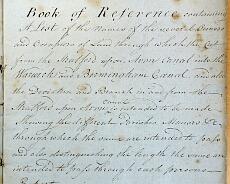 Book of Reference containing
A List of the Names of the several Owners
and Occupiers of Land through which the Cut
from the Stratford upon Avon Canal into the
Warwick and Birmingham Canal and also
the Deviation and Branch in and from the
Canal
Stratford upon Avon is intended to be made
Shewing the different Parishes Manors &c
through which the same are intended to pass
and also distinguishing the length the same are
intended to pass through each persons